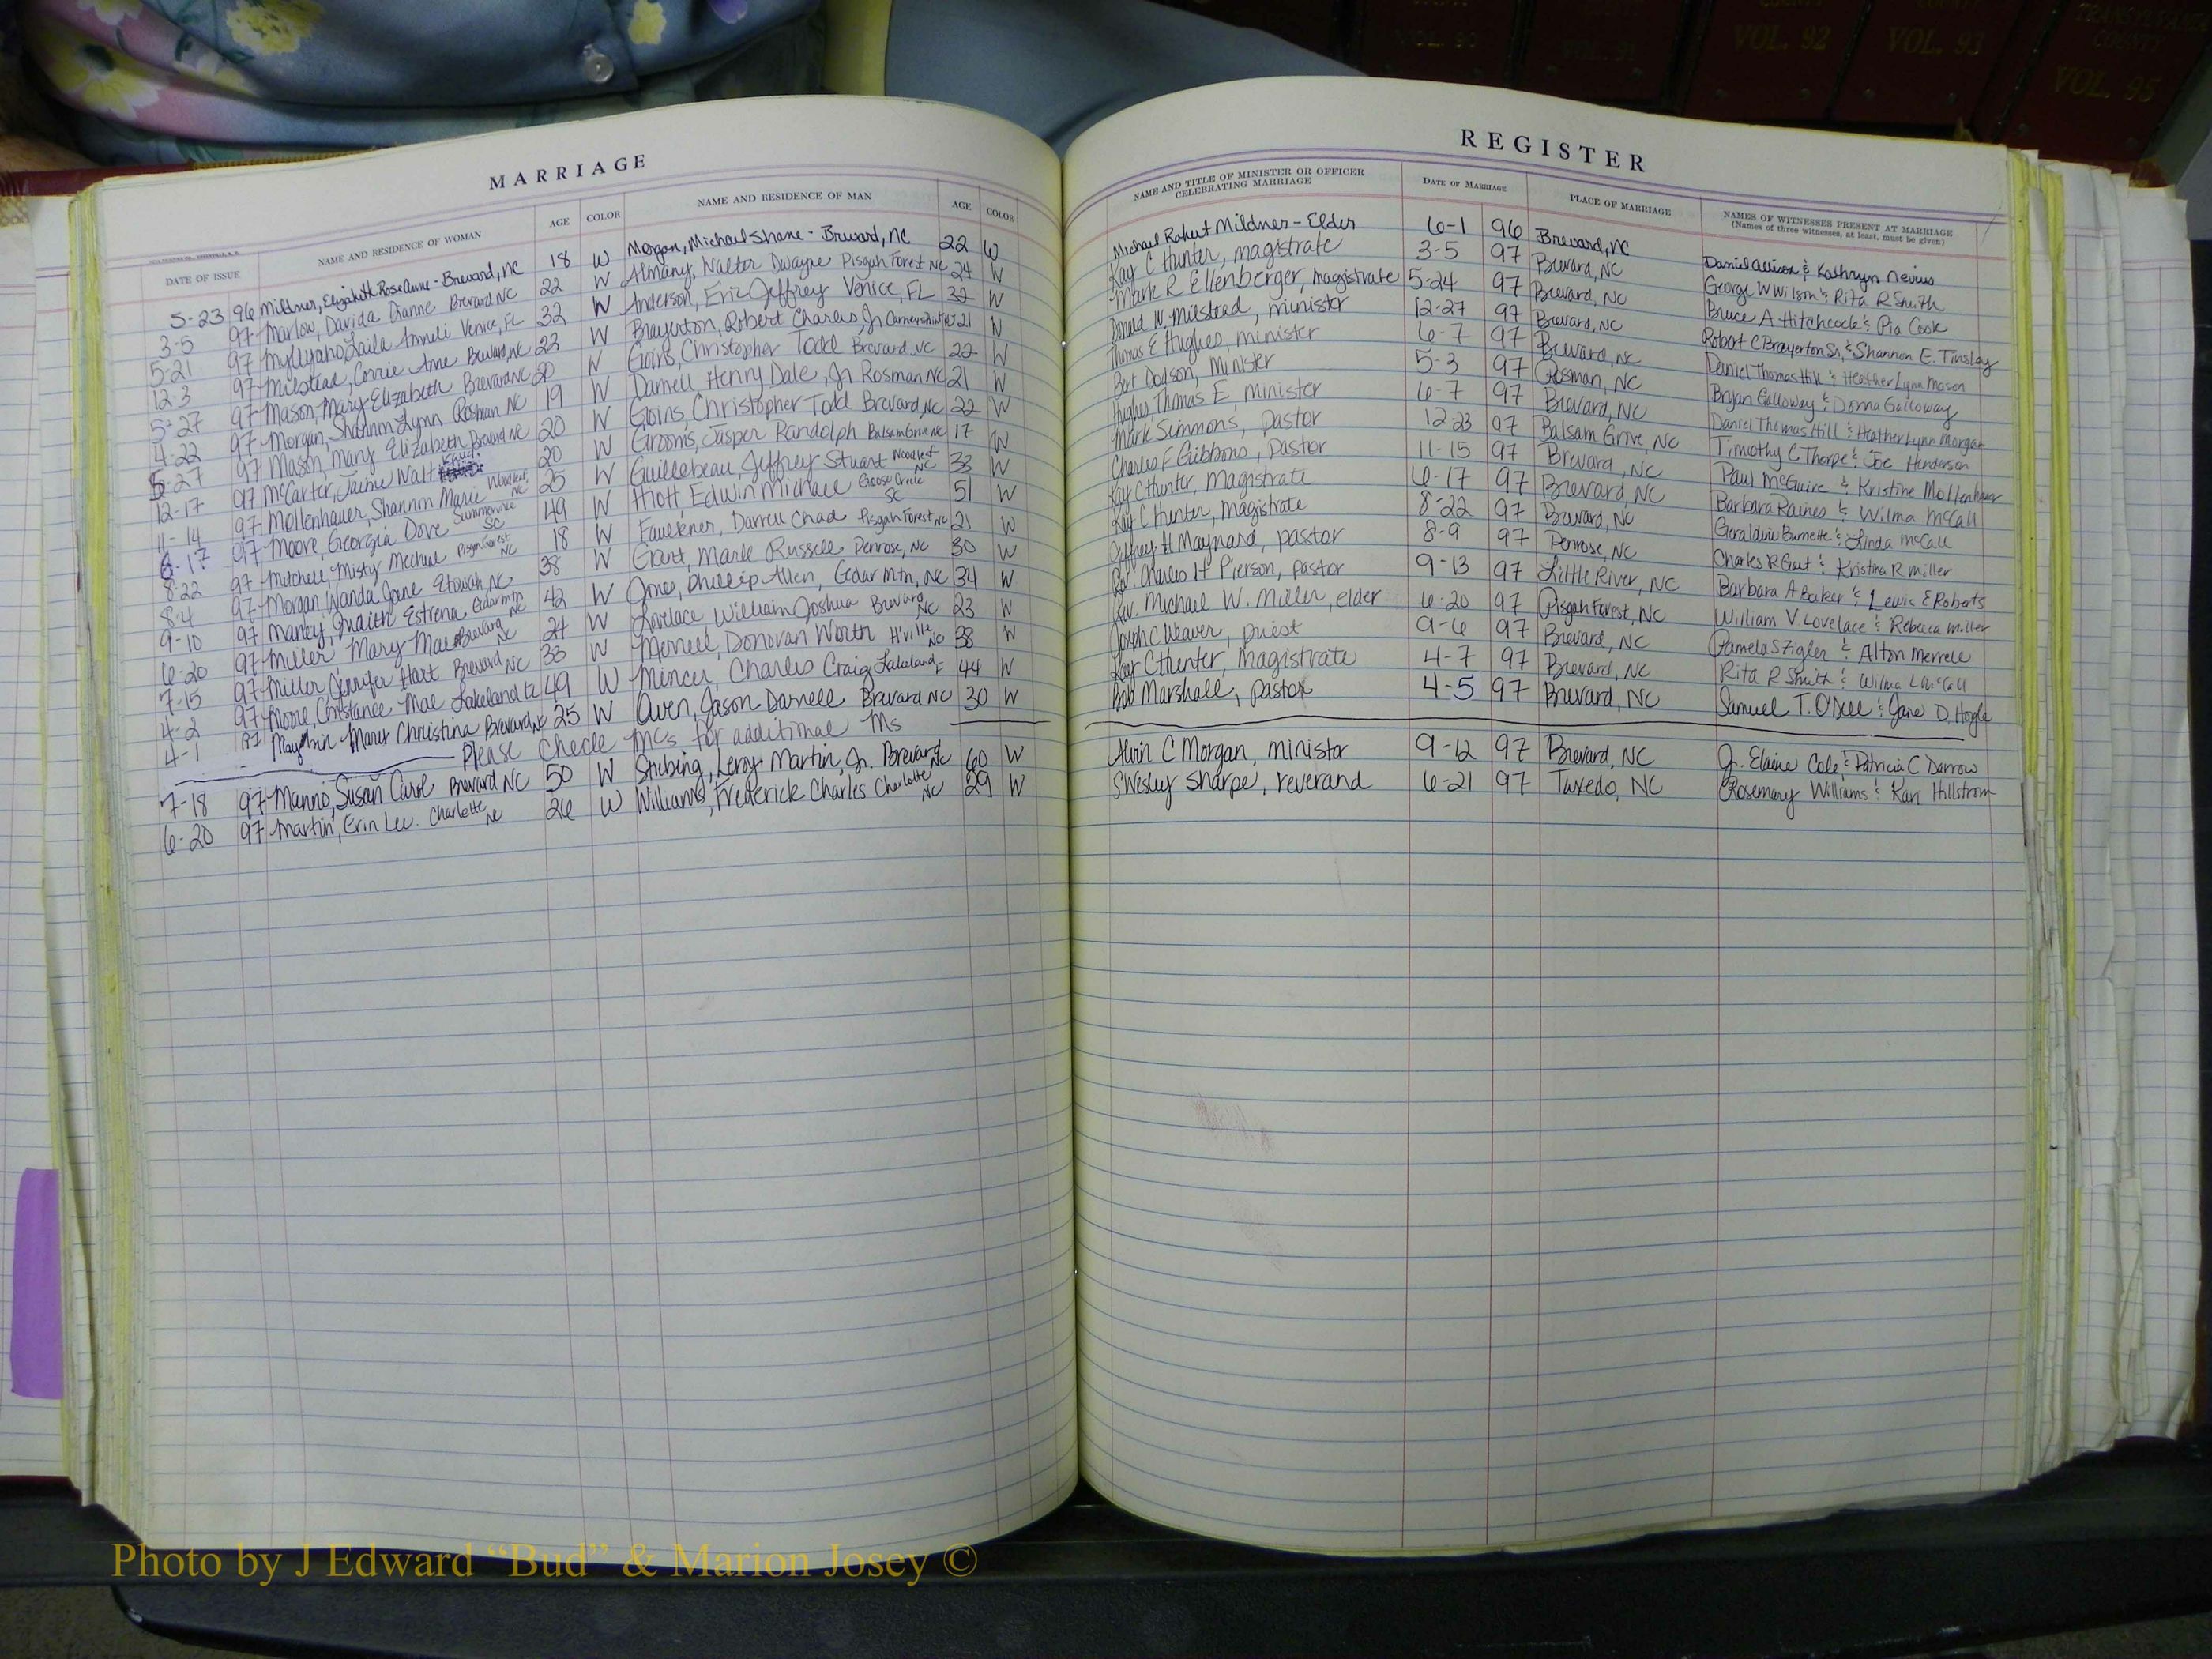 COUNTY
VOL. 90
VOL. 91
COUNTY
VOL. 92
COUNTY
VOL. 93
TRANSYLVANIA
COUNTY
VOL. 95
MARRIAGE
DATE OF ISSUE NAME AND RESIDENCE OF WOMAN AGE COLOR NAME AND RESIDENCE OF MAN AGE COLOR
5-23 96 Mildner, Elizabeth Rose Anne - Brevard, NC 18 W Morgan, Michael Shane - Brevard, NC 22 W
3-5 97 Marlow, Davida Dianne Brevard NC 22 W Almany, Walter Dwayne Pisgah Forest NC 24 W
5-21 97 Laila Anneli Venice, FL 32 W Anderson, Eric Jeffrey Venice, FL 32 W
12-3 97 Milstead, Corrie Anne Brevard NC 22 W Brayerton, Robert Charles, Jr 21 W
5-27 97 Mason, Mary Elizabeth Brevard NC 20 W Goins, Christopher Todd Brevard, NC 22 W
4-22 97 Morgan, Shannon Lynn Rosman NC 19 W Darnell, Henry Dale, Jr Rosman NC 21 W
5-27 97 Mason, Mary Elizabeth Brevard NC 20 W Goins, Christopher Todd Brevard, NC 22 W
12-17 97 McCarter, Jaime Walt 20 W Grooms, Jasper Randolph Balsam Grove NC 17 W
11-14 97 Mollenhauer, Shannon Marie Woodleaf, NC 25 W Guillebeau, Jeffrey Stuart Woodleaf NC 33 W
6-17 97 Moore, Georgia Dove Summerville SC 49 W Hiott, Edwin Michael Goose Creek SC 51 W
8-22 97 Mitchell, Misty Micheal Pisgah Forest NC 18 W Faulkner, Darrell Chad Pisgah Forest NC 21 W
8-4 97 Morgan, Wanda Jane Etowah, NC 38 W Gant, Mark Russell Penrose, NC 30 W
9-10 97 Judith Estrena Cedar Mtn NC 42 W Jones, Phillip Allen, Cedar Mtn, NC 34 W
6-20 97 Miller, Mary Mae Brevard NC 24 W Lovelace William Joshua Brevard, NC 23 W
7-15 97 Miller, Jennifer Hart Brevard NC 33 W Merrell, Donovan Worth H'ville NC 38 W
4-2 97 Moore, Constance Mae Lakeland FL 49 W Mincer, Charles Craig Lakeland, F 44 W
4-1 97 Mary Christina Brevard NC 25 W Owen, Jason Darnell Brevard NC 30 W
Please check MCs for additional Ms
7-18 97 Manno, Susan Carol Brevard NC 50 W Stribing, Leroy Martin, Jr. Brevard NC 60 W
6-20 97 Martin, Erin Lee Charlotte NC 26 W Williams, Frederick Charles Charlotte NC 29 W
REGISTER
NAME AND TITLE OF MINISTER OR OFFICER CELEBRATING MARRIAGE DATE OF MARRIAGE PLACE OF MARRIAGE NAMES OF WITNESSES PRESENT AT MARRIAGE
(Names of three witnesses, at least, must be given)
Michael Robert Mildner - Elder 6-1 96 Brevard, NC Daniel Allison & Kathryn Nevius
Kay C Hunter, magistrate 3-5 97 Brevard, NC George W Wilson & Rita R Smith
Mark R Ellenberger, Magistrate 5-24 97 Brevard, NC Bruce A Hitchcock & Pia Cook
Donald W. Milstead, minister 12-27 97 Brevard, NC Robert C Brayerton Sr, & Shannon E. Tinsley
Thomas E Hughes, minister 6-7 97 Brevard, NC Daniel Thomas Hill & Heather Lynn Mason
Bert Dodson, Minister 5-3 97 Rosman, NC Bryan Galloway & Donna Galloway
Hughes Thomas E, minister 6-7 97 Brevard, NC Daniel Thomas Hill & Heather Lynn Morgan
Mark Simmons, pastor 12-23 97 Balsam Grove, NC Timothy C Thorpe & Joe Henderson
Charles F Gibbons, Pastor 11-15 97 Brevard, NC Paul McGuire & Kristine Mollenhauer
Kay C Hunter, Magistrate 6-17 97 Brevard, NC Barbara Raines & Wilma McCall
Kay C Hunter, magistrate 8-22 97 Brevard, NC Geraldine Burnette & Linda McCall
Jeffrey H Maynard, pastor 8-9 97 Penrose, NC Charles R Gant & Kristina R Miller
Rev. Charles H Pierson, pastor 9-13 97 Little River, NC Barbara A Baker & Lewis E Roberts
Rev. Michael W. Miller, elder 6-20 97 Pisgah Forest, NC William V Lovelace & Rebecca Miller
Joseph C Weaver, priest 9-6 97 Brevard, NC Pamela S Zigler & Alton Merrell
Kay C Hunter, magistrate 4-7 97 Brevard, NC Rita R Smith & Wilma L McCall
Bob Marshall, pastor 4-5 97 Brevard, NC Samuel T. O'Dell & Jane D. Hogle
Alvin C Morgan, minister 9-12 97 Brevard, NC Jr. Elaine Cole & Patricia C Darrow
S Wesley Sharpe, reverand 6-21 97 Tuxedo, NC Rosemary Williams & Kari Hillstrom
Photo by J Edward “Bud” & Marion Josey ©